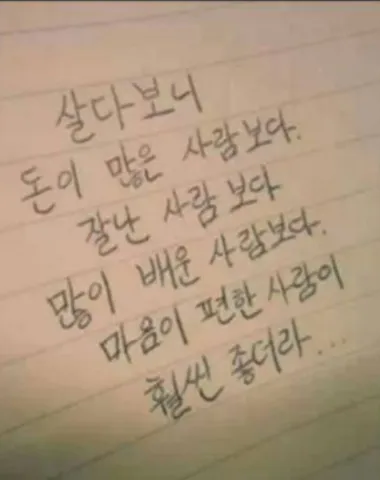 살다보니
돈이 많은 사람보다.
잘난 사람보다
많이 배운 사람보다.
마음이 편한 사람이
훨씬 좋더라...